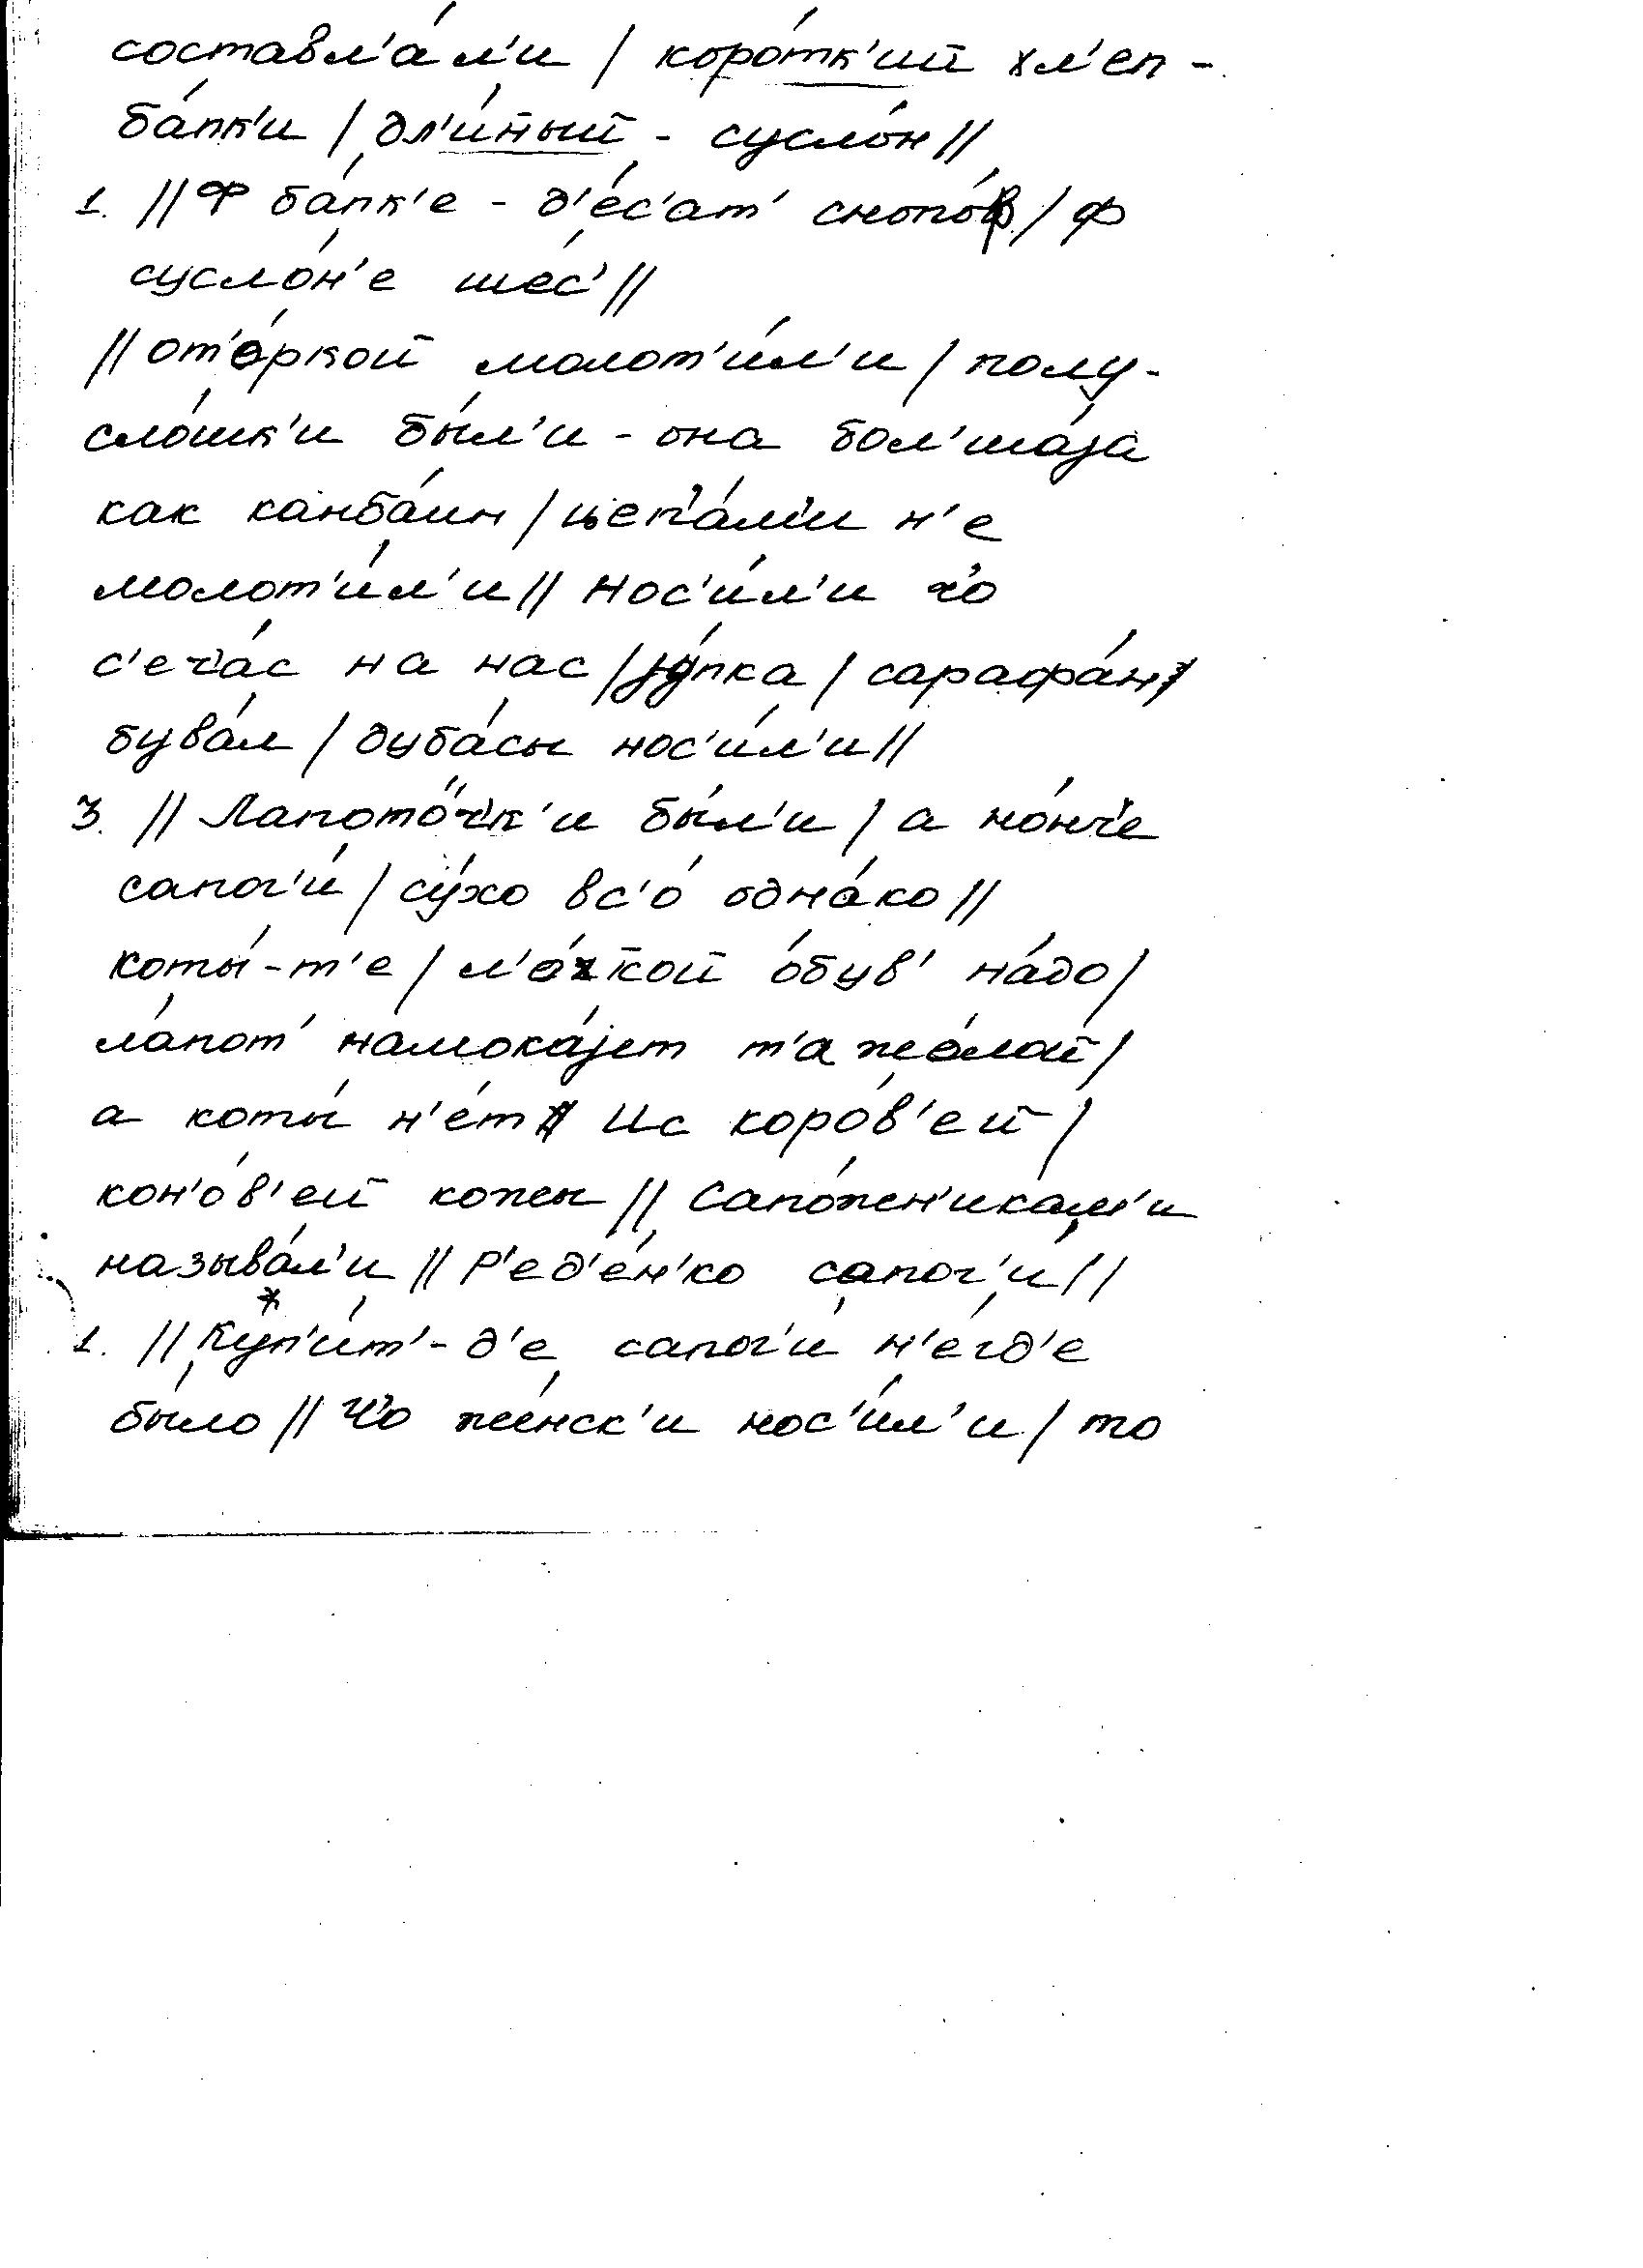 составл'а́л'и / коро́тк'ий хл'еп -
ба́пк'и / дл'и́н̄ый - сусло́н //
1. // Ф ба́пк'е - д'е́с'ат' снопо́ф / ф
сусло́н'е шес' //
// от'о́ркой молот'и́л'и / полу-
сло́шк'и бы́л'и - она бол'ша́jа
как канба́ин / цепа́м'и н'е
молот'и́л'и // Нос'и́л'и ч'о
с'еч'а́с на нас / jу́пка / сарафа́н /
бува́л / дуба́сы нос'и́л'и //
3. // Лапото́ч'к'и бы́л'и / а но́нч'е
сапог'и́ / су́хо вс'о́ одна́ко //
коты́-т'е / л'о́хкой о́був' на́до /
ла́пот' намока́jет т'ажо́лой /
а коты́ н'ет // Ис коро́в'ей /
кон'о́в'ей кожы // Сапо́жен'икам'и
называ́л'и // Р'ед'е́н'ко сапог'и́ //
1. // Куп'и́т'-д'е сапог'и́ н'е́гд'е
бы́ло // Ч'о же́нск'и нос'и́л'и / то